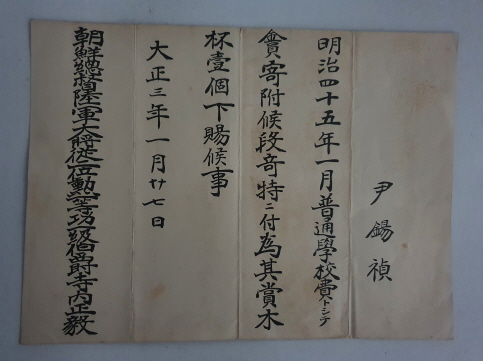 尹錫禎
明治四十五年一月普通學校費トシテ
金貳圓寄附候段奇特ニ付為其賞木
杯壹個下賜候事
大正三年一月廿七日
朝鮮總督陸軍大將從二位勳一等功一級伯爵寺内正毅